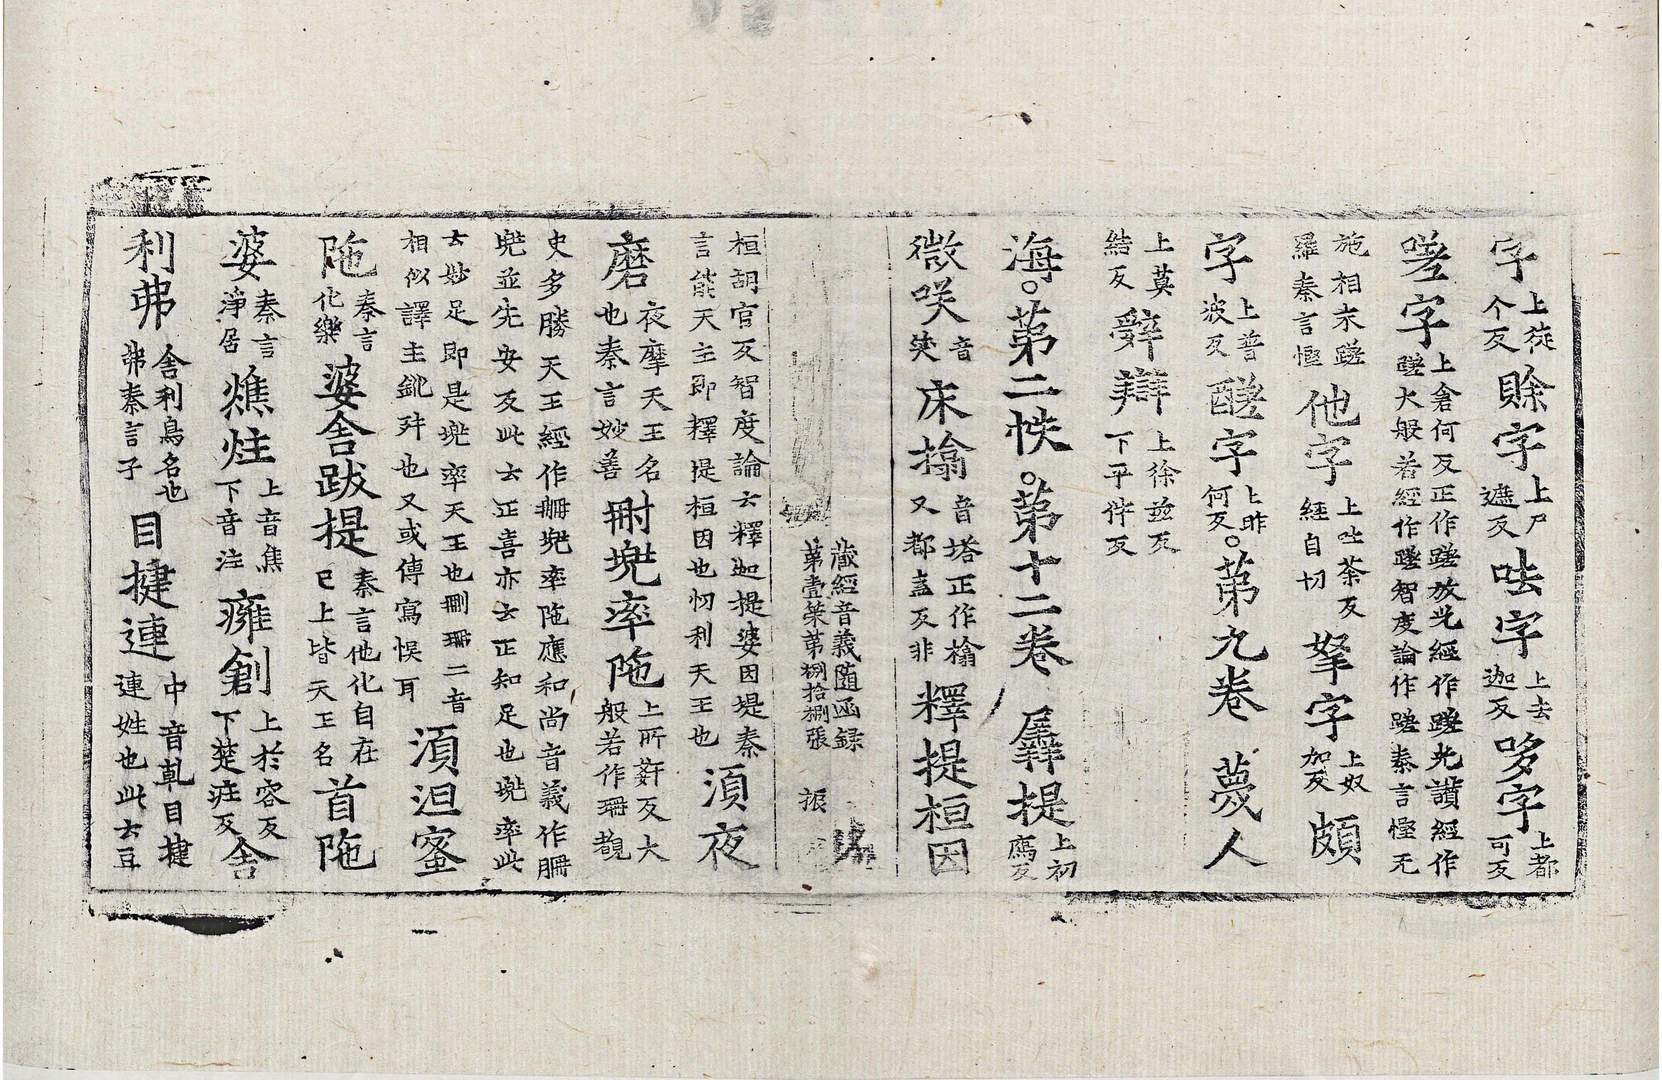 字上徒个反賒字上尸遮反呿字上去迦反哆字上都可反
嗟字上倉何反正作蹉放光經作蹉光讃經作蹉大般若經作蹉智度論作蹉秦言慳无
施相末蹉羅秦言慳他字上吐茶反經自切拏字上奴加反頗
字上普波反醝字上昨何反。第九卷 薎人
上莫結反辤辯上徐玆反下平件反
海。第二帙。第十二卷 羼提上初鴈反
微咲音笑床搨音塔正作榻又都盍反非釋提桓因
桓胡官反智度論云釋迦提婆因堤秦言能天主即釋提桓因也忉利天王也須夜
磨夜摩天王名也秦言妙善刪兠率陁上所姧反大般若作珊覩
史多勝天王經作珊兠率陁應和尚音義作㣃兠並先安反此云正喜亦云正知足也兠率此
云妙足即是兠率天王也刪珊二音相似譯主訛舛也又或傳寫悮耳湏涅蜜
陁秦言化樂婆舍跋提秦言他化自在已上皆天王名首陁
婆秦言淨居燋炷上音焦下音注癰創上於容反下楚疰反舍
利弗舍利鳥名也弗秦言子目揵連中音乹目揵連姓也此云豆
藏經音義随函録
第壹筞第捌拾捌張 振